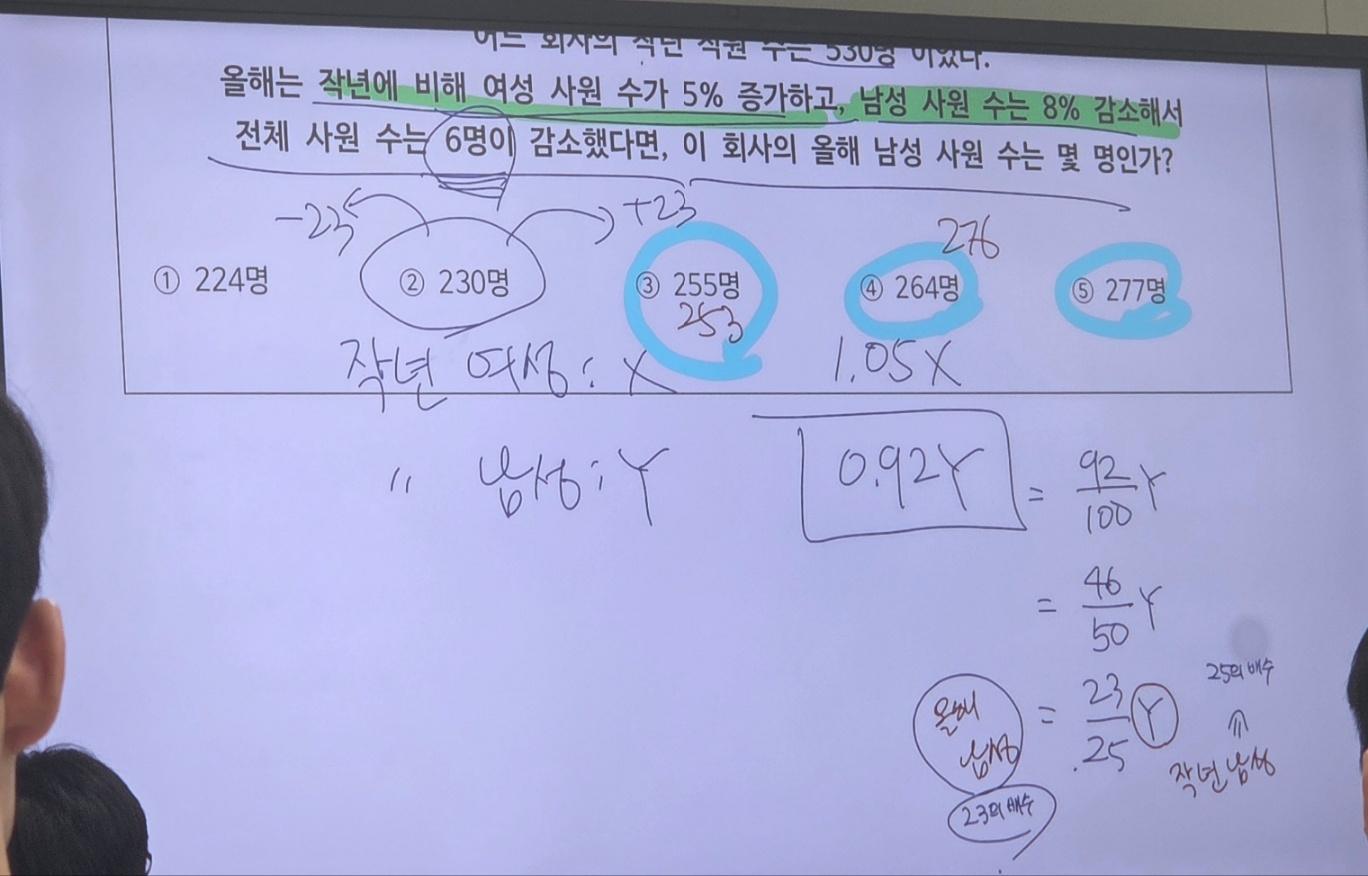 어느 회사의 작년 직원 수는 530명 이었다.
올해는 작년에 비해 여성 사원 수가 5% 증가하고, 남성 사원 수는 8% 감소해서
전체 사원 수는 6명이 감소했다면, 이 회사의 올해 남성 사원 수는 몇 명인가?
-23 +23 276
① 224명 ② 230명 ③ 255명 ④ 264명 ⑤ 277명
253
작년 여성: X 1.05X
" 남성: Y 0.92Y = 92/100 Y
= 46/50 Y
25의 배수
올해 남성 = 23/25 Y
작년 남성
23의 배수